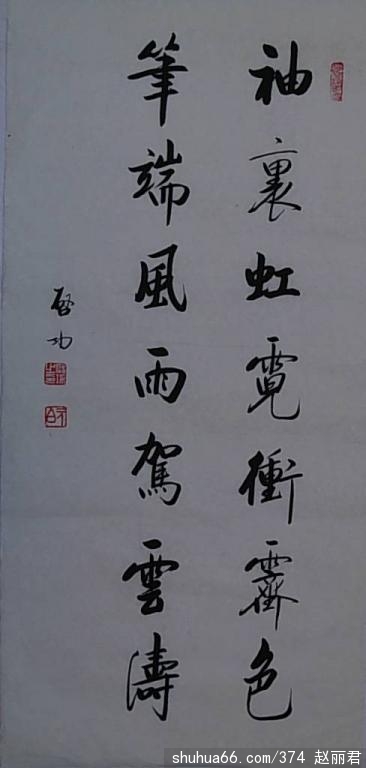 袖裏虹霓衝霽色
筆端風雨駕雲濤
啓功
shuhua66.com/374 赵丽君